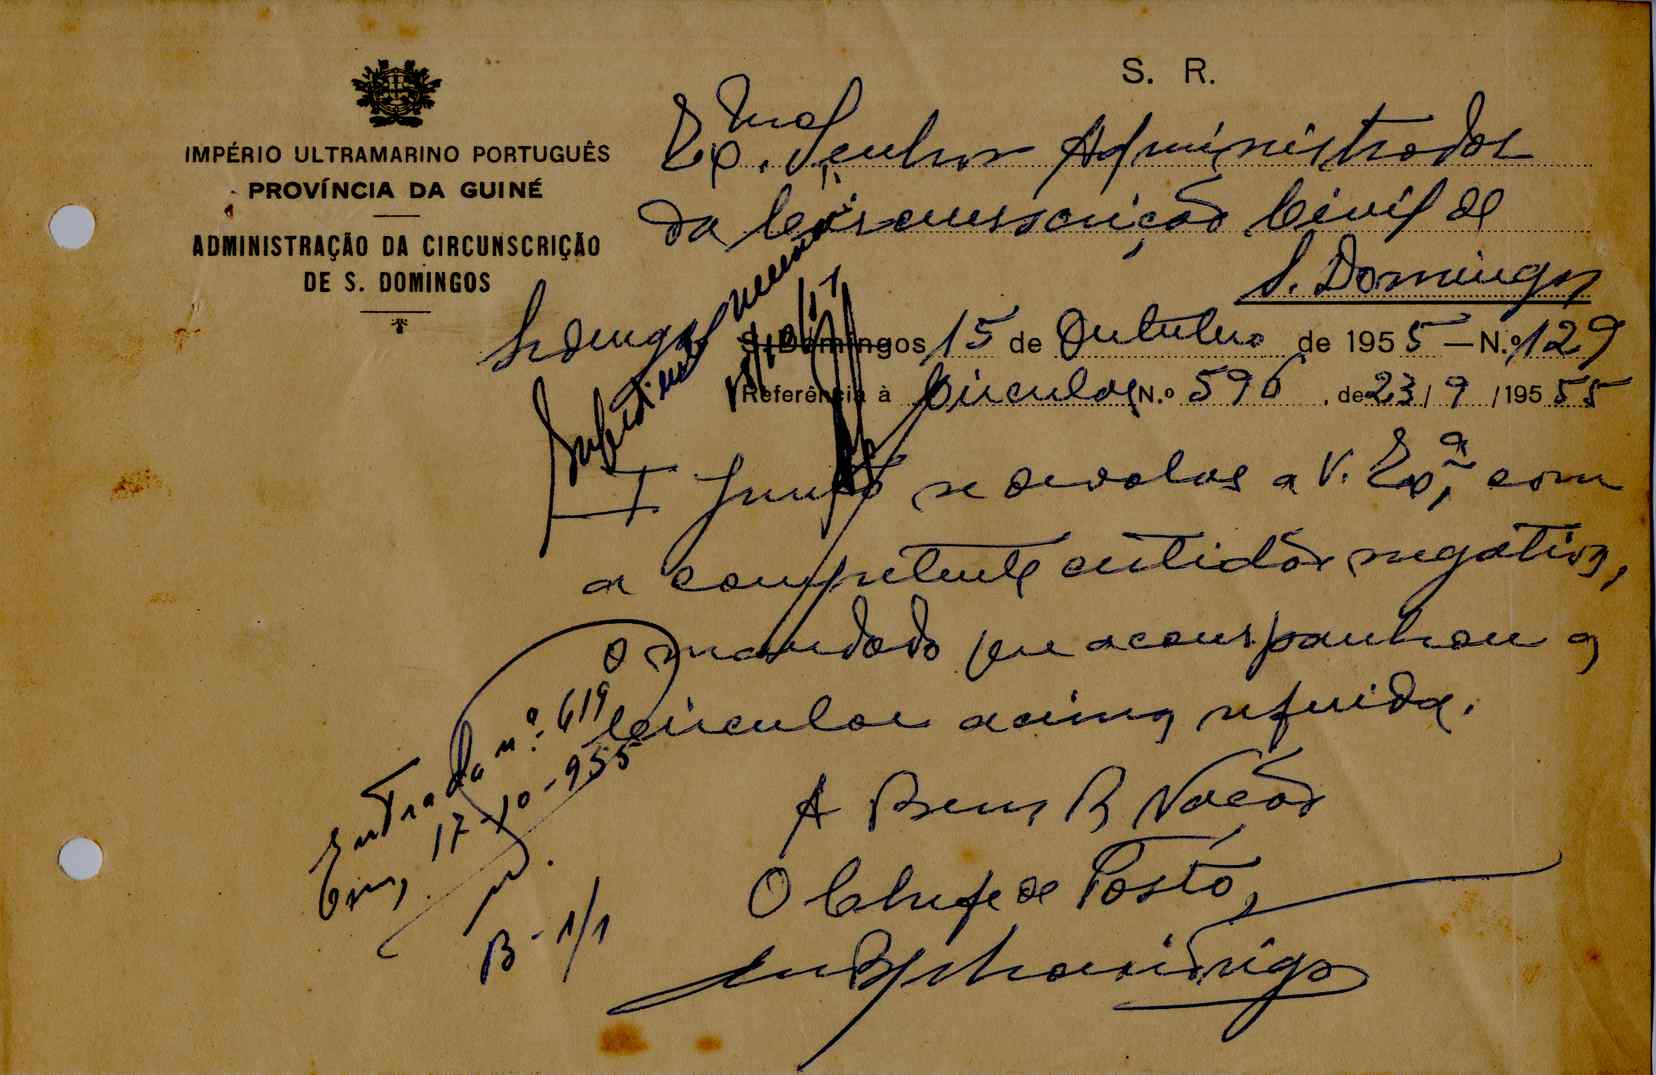 S. R.
IMPÉRIO ULTRAMARINO PORTUGUÊS
PROVÍNCIA DA GUINÉ
ADMINISTRAÇÃO DA CIRCUNSCRIÇÃO
DE S. DOMINGOS
Exmo. Senhor Administrador
da Circunscrição Civil de
S. Domingos
S. Domingos 15 de Outubro de 1955 — N.º 129
Referência à Circular N.º 596, de 23/9/195 55
Junto se devolve a V. Exª, com
a competente certidão negativa,
o mandado que acompanhou a
circular acima referida.
A Bem da Nação
O Chefe de Posto,
Entrada n.º 619
Em, 17-10-955
B-1/1